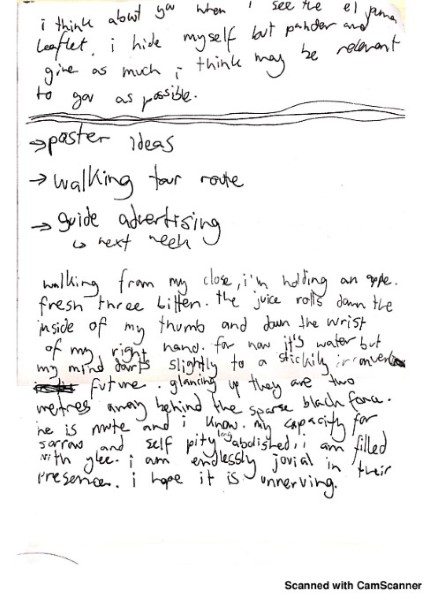 i think about you when i see the el puma
leaflet. i hide myself but pander and
give as much i think may be relevant
to you as possible.
→ poster ideas
→ walking tour route
→ guide advertising
↳ next week
walking from my close, i'm holding an apple.
fresh three bitten. the juice rolls down the
inside of my thumb and down the wrist
of my right hand. for now it's water but
my mind darts slightly to a stickily
future. glancing up they are two
metres away behind the sparse black fence.
he is mute and i know. my capacity for
sorrow and self pitying abolished, i am filled
with glee. i am endlessly jovial in their
presence. i hope it is unnerving.
Scanned with CamScanner